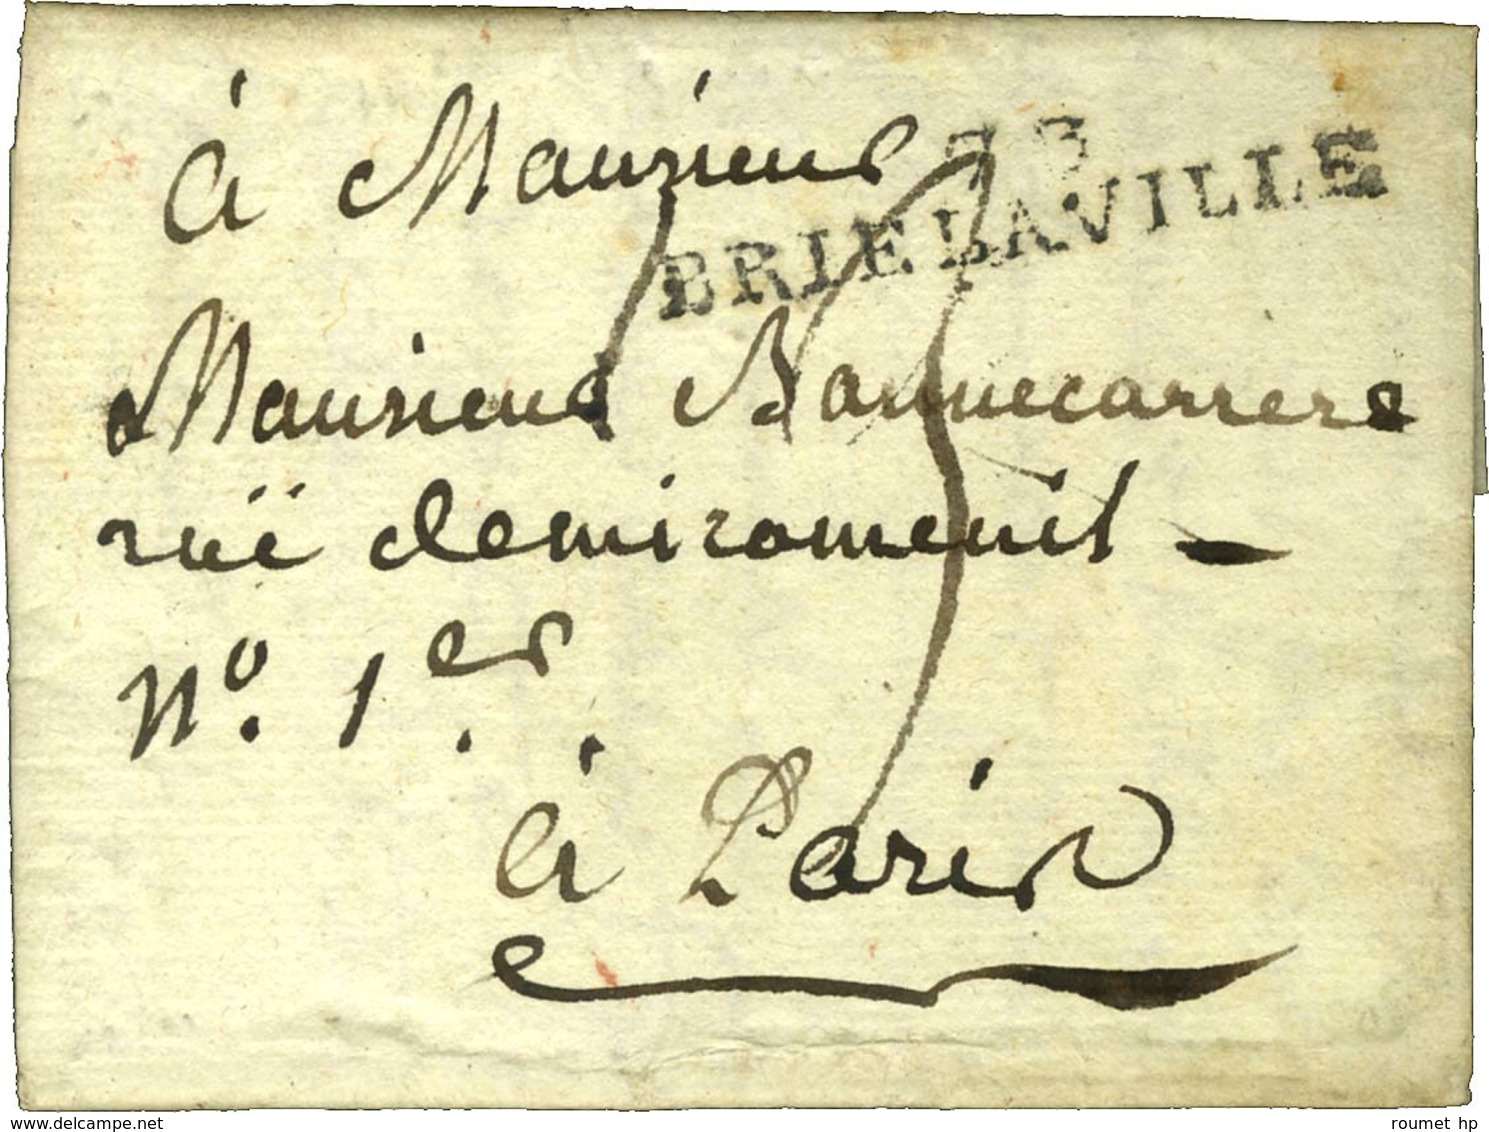 à Monsieur
73
BRIE LA VILLE
Monsieur Bonnecarrere
ruë demiromenil -
N° . 1er .
à Paris
www.delcampe.net
roumet hp